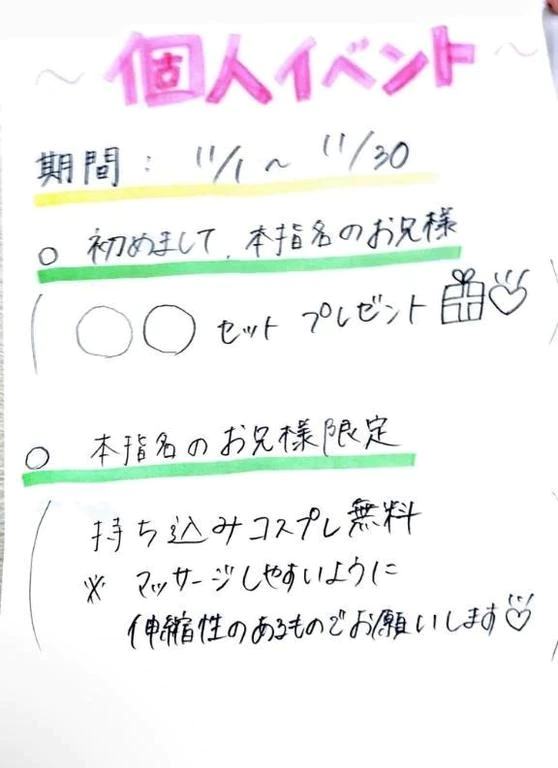 ~ 個人イベント ~
期間： 11/1 〜 11/30
○ 初めまして、本指名のお兄様
(○○ セット プレゼント )
○ 本指名のお兄様限定
( 持ち込みコスプレ無料
※ マッサージしやすいように
伸縮性のあるものでお願いします♡